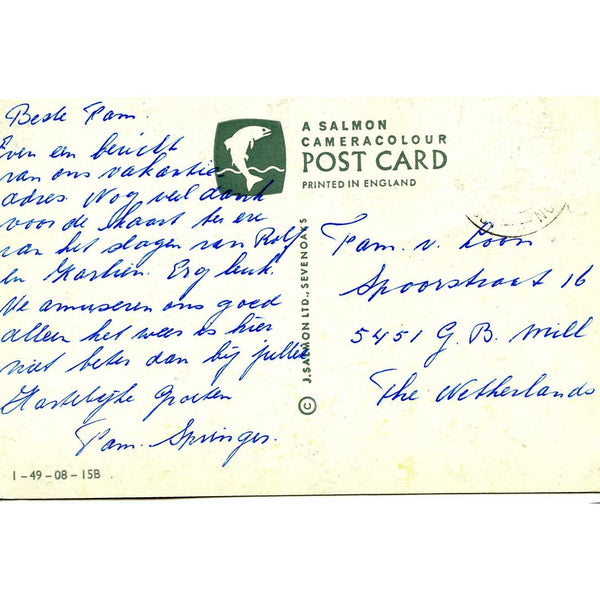 Beste Fam.
Even een bericht
van ons vakantie
adres. Nog veel dank
voor de kaart ter ere
van het slagen van Rolf
en Karlien. Erg leuk.
We amuseren ons goed
alleen het weer is hier
niet beter dan bij jullie
Hartelijke Groeten
Fam. Springer.
1-49-08-15B
A SALMON
CAMERACOLOUR
POST CARD
PRINTED IN ENGLAND
© J. SALMON LTD., SEVENOAKS
Fam. v. Loon
Spoorstraat 16
5451 G.B. Mill
The Netherlands